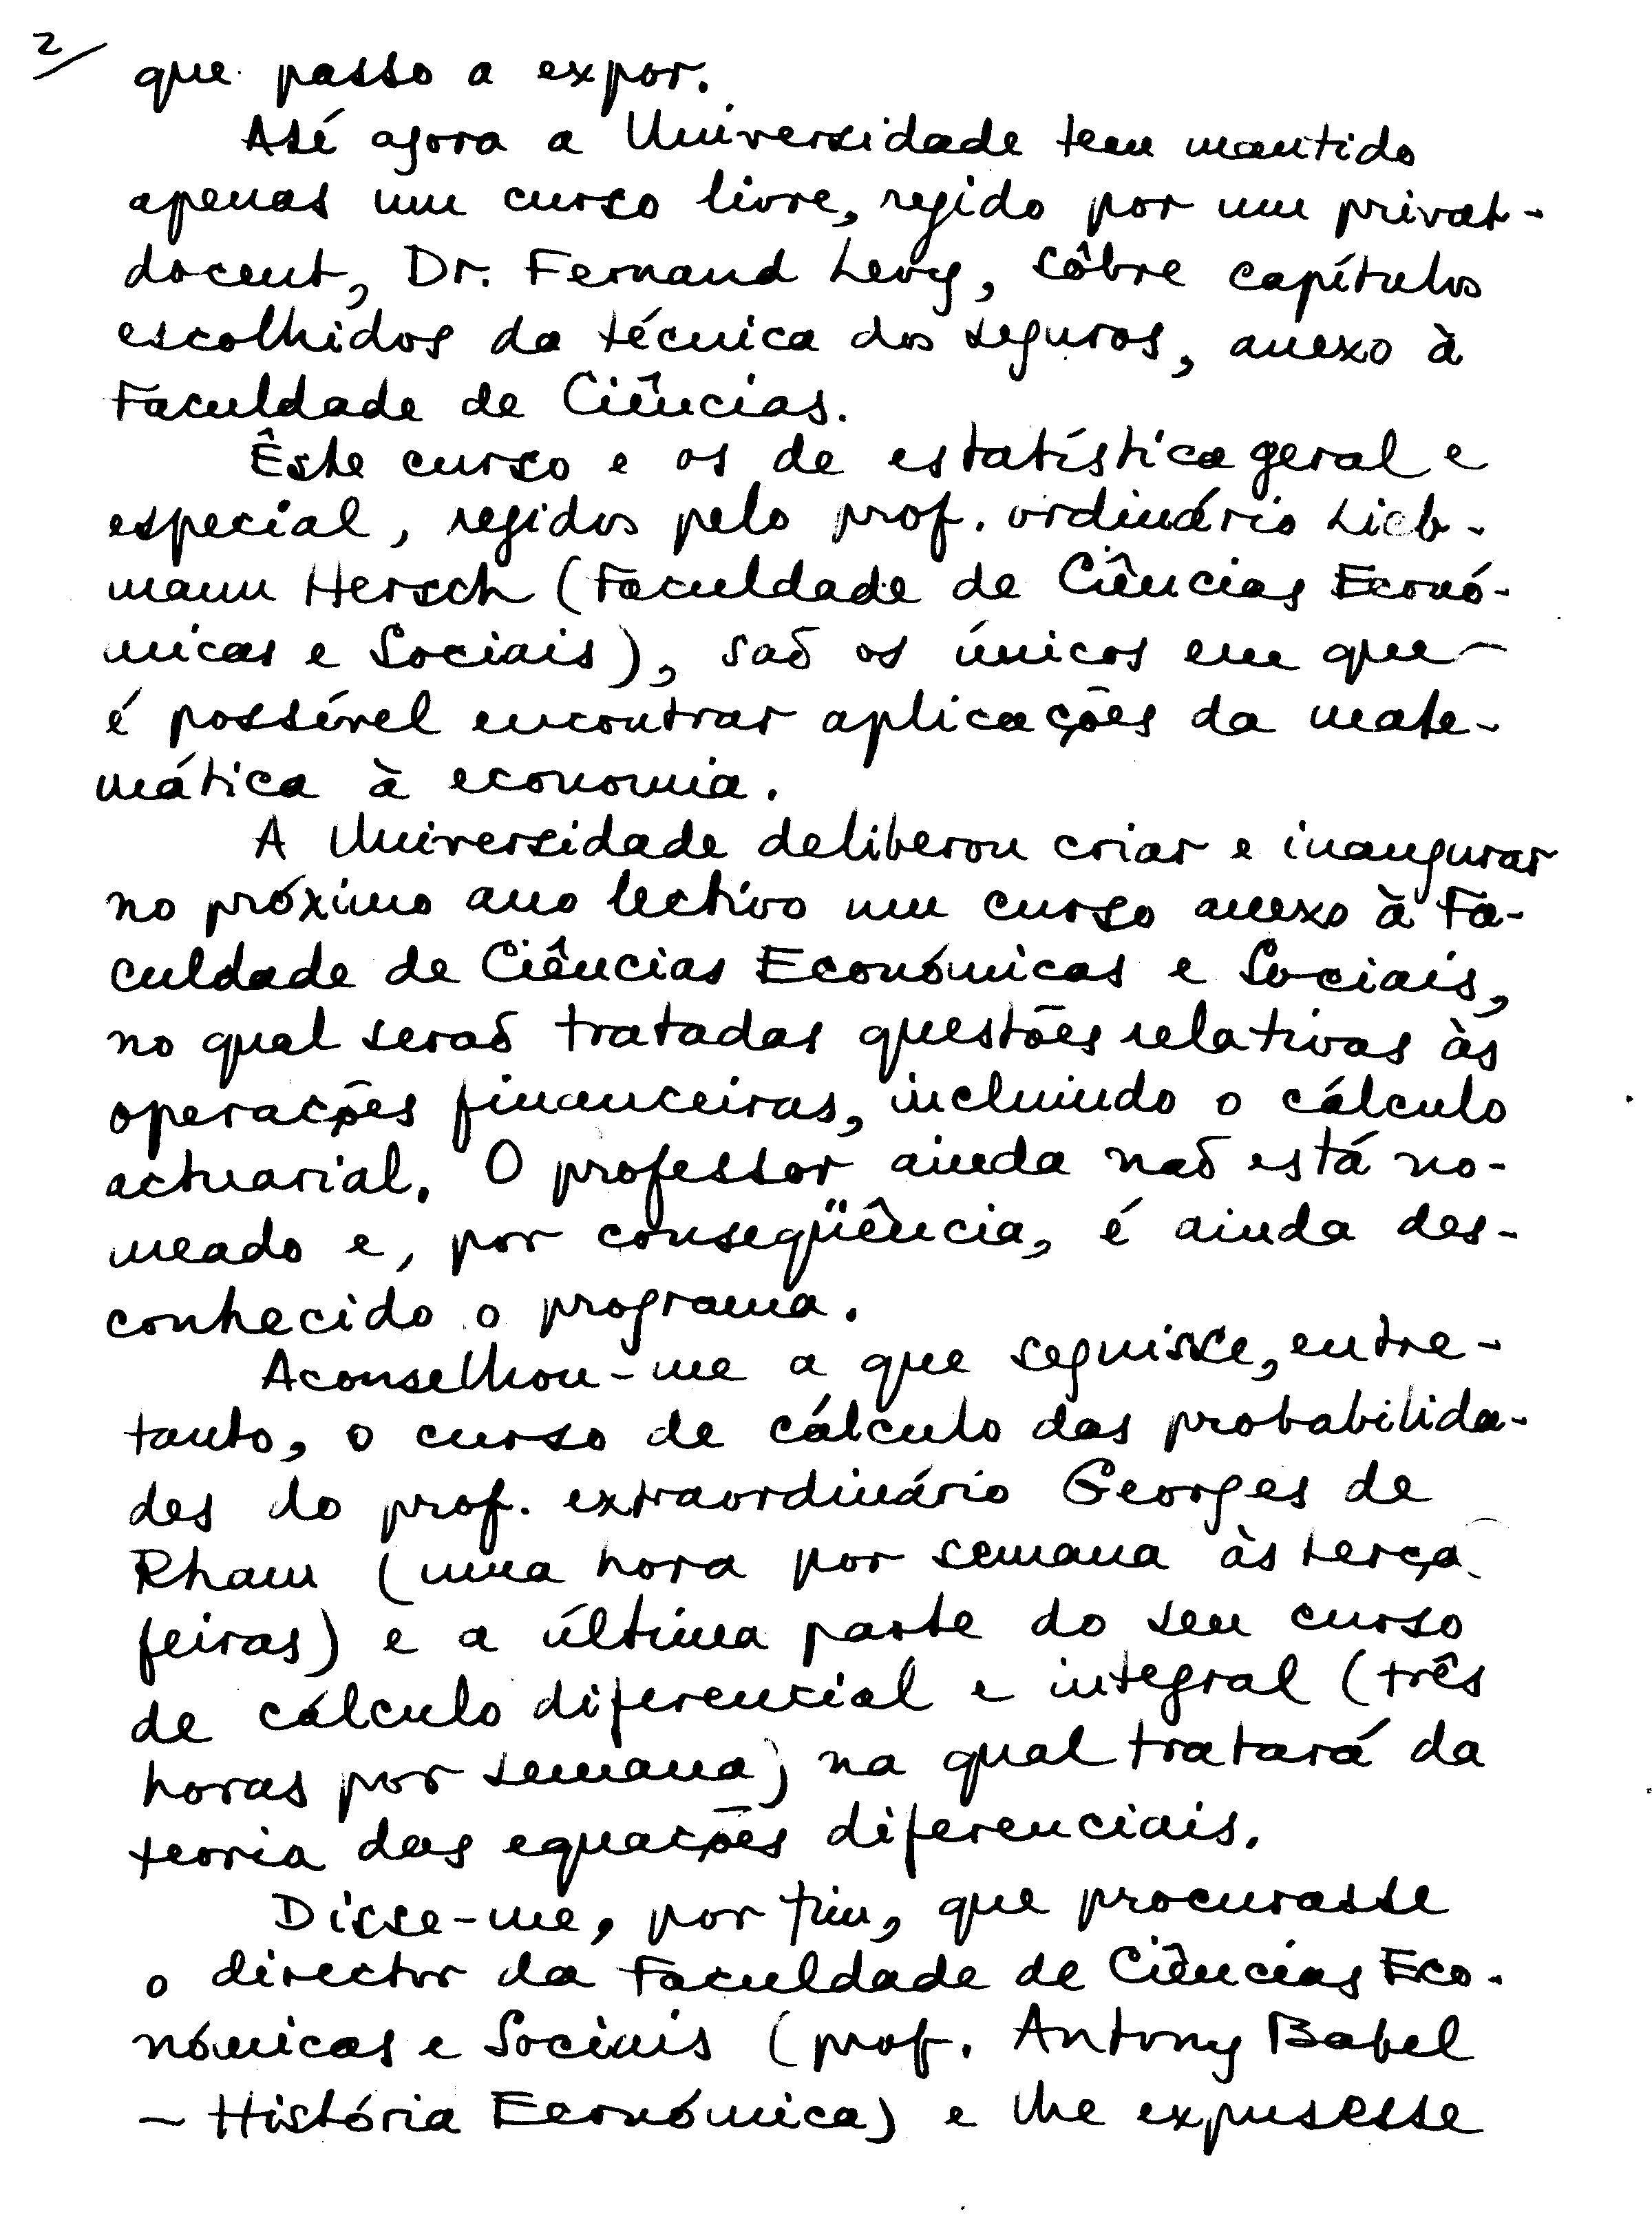 2/ que passo a expor.
Até agora a Universidade tem mantido
apenas um curso livre, regido por um privat-
docent, Dr. Fernand Levy, sôbre capítulos
escolhidos da técnica dos seguros, anexo à
Faculdade de Ciências.
Êste curso e os de estatística geral e
especial, regidos pelo prof. ordinário Lieb-
mann Hersch (Faculdade de Ciências Econó-
micas e Sociais), saõ os únicos em que
é possível encontrar aplicações da mate-
mática à economia.
A Universidade deliberou criar e inaugurar
no próximo ano lectivo um curso anexo à Fa-
culdade de Ciências Económicas e Sociais,
no qual seraõ tratadas questões relativas às
operações financeiras, incluindo o cálculo
actuarial. O professor ainda naõ está no-
meado e, por conseqüência, é ainda des-
conhecido o programa.
Aconselhou-me a que seguisse, entre-
tanto, o curso de cálculo das probabilida-
des do prof. extraordinário Georges de
Rham (uma hora por semana às terça-
feiras) e a última parte do seu curso
de cálculo diferencial e integral (três
horas por semana) na qual tratará da
teoria das equações diferenciais.
Disse-me, por fim, que procurasse
o director da Faculdade de Ciências Eco-
nómicas e Sociais (prof. Antony Babel
- História Económica) e lhe expusesse